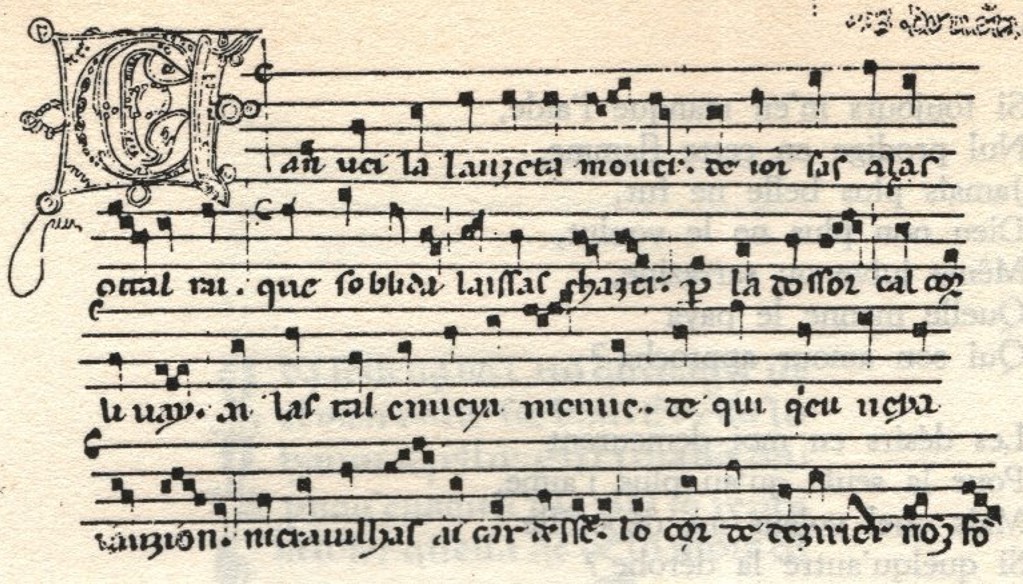 Can uei la lauzeta mouer. de ioi sas alas
cal rai. que soblida laissas chazer. p la dossor cal cor
li uay. ai las tal enueya menue. de qui qeu ueya
iauzion. merauilhas ai car desse. lo cor de dezirier noz fō